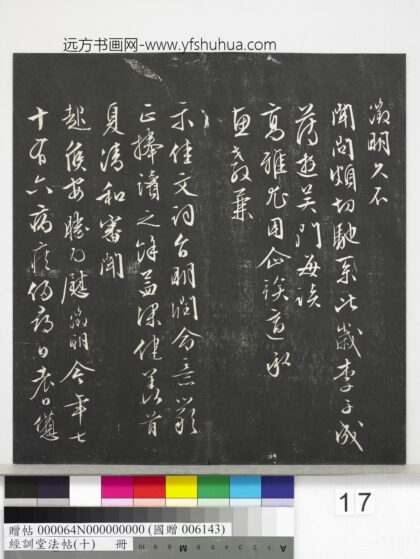 远方书画网-www.yfshuhua.com
徵明久不
聞問傾切馳系比歲李子成
薄遊吴門每談
高雅尤用企
惠教兼
示佳文詞合明潤分
正捧讀之餘益深健羨首
夏清和審聞
起居安勝為慰徵明今年七
十有六病疾仍尋日老日憊
17
贈帖 000064N000000000 (國贈 006143)
經訓堂法帖(十) 冊